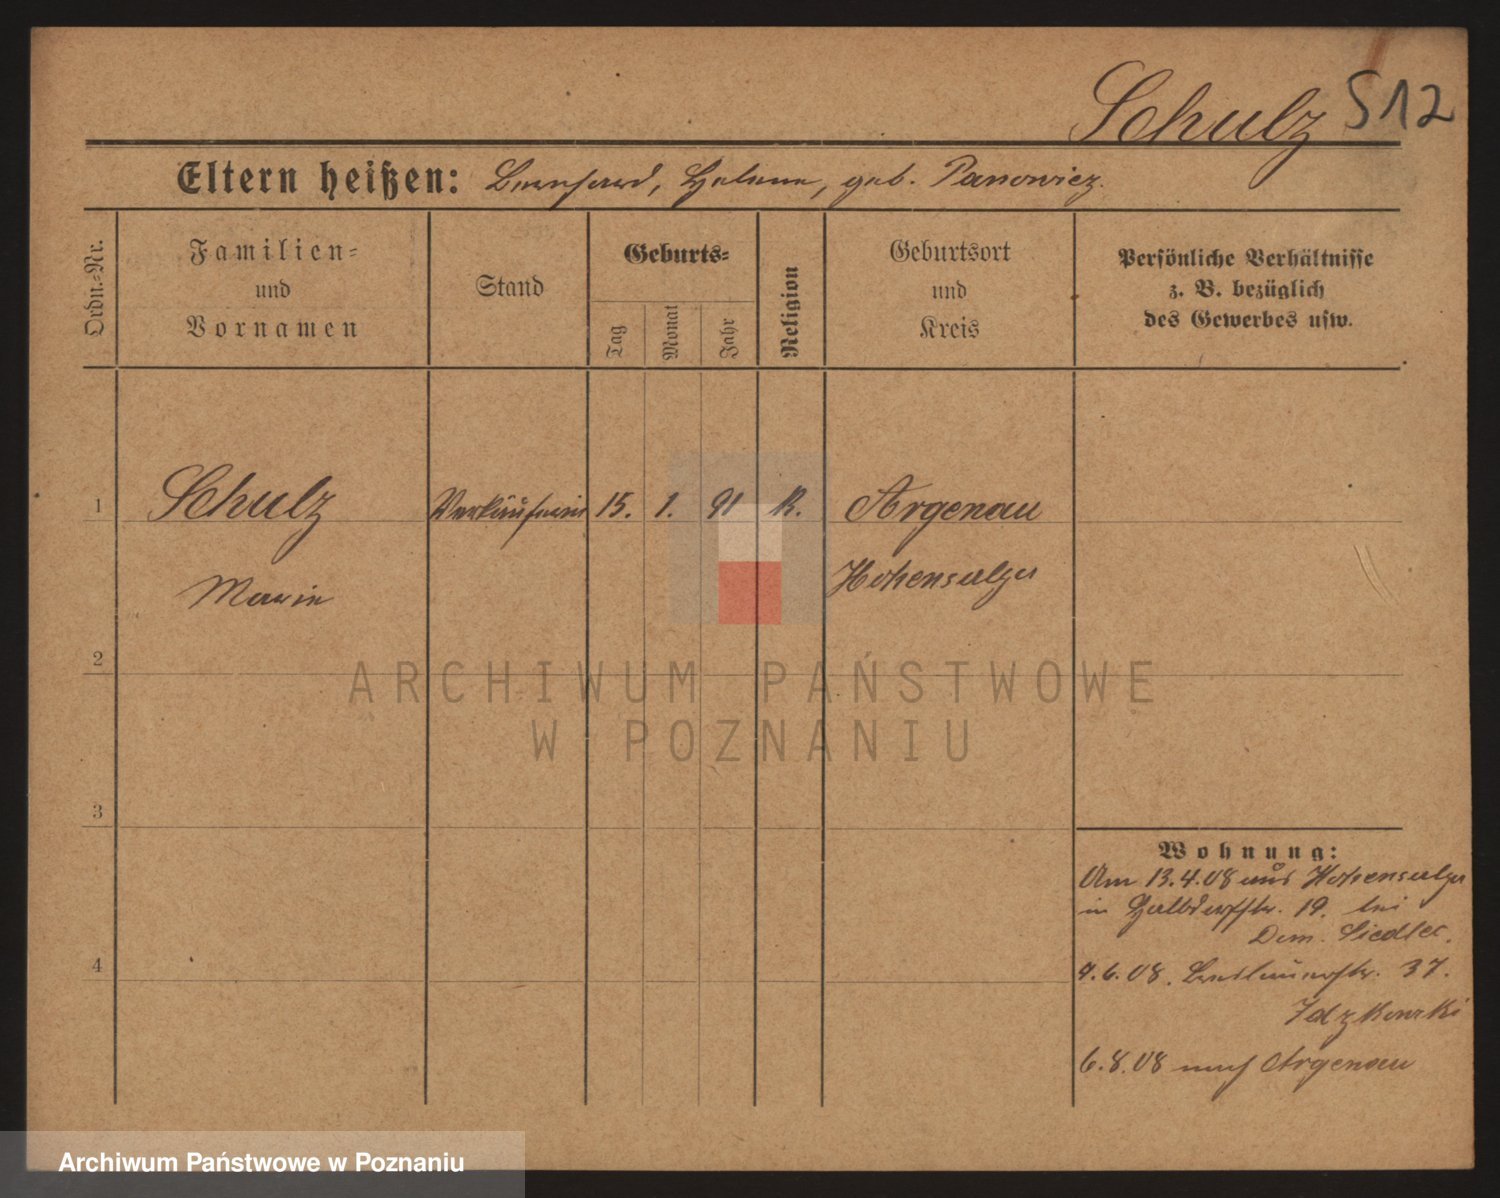 Schulz S12
Eltern heißen: Bernhard, Helene, geb. Panowicz.
Ordn.-Nr.
Familien-
und
Vornamen
Stand
Geburts-
Tag
Monat
Jahr
Religion
Geburtsort
und
Kreis
Persönliche Verhältnisse
z. B. bezüglich
des Gewerbes usw.
1 Schulz Verkäuferin 15. 1. 91 K. Argenau
Marie Hohensalza
2
ARCHIWUM PAŃSTWOWE
W POZNANIU
3
Wohnung:
Am 13.4.08 aus Hohensalza
in Halbdorfstr. 19. bei
Dom. Siedler.
4
9.6.08. Breslauerstr. 37.
6.8.08 nach Argenau
Archiwum Państwowe w Poznaniu